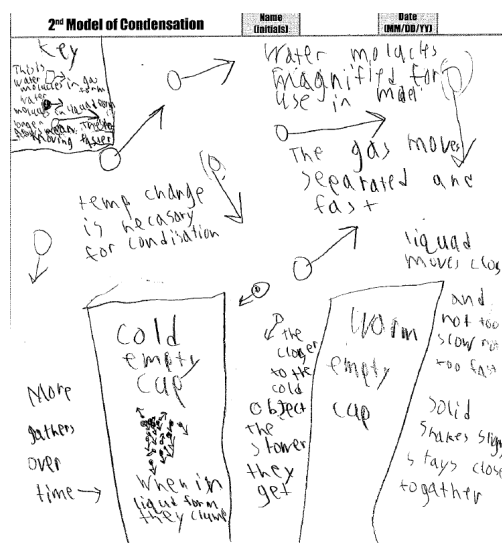 2nd Model of Condensation
Name
(initials)
Date
(MM/DD/YY)
Key
This is
water
molucles in gas form
water
molucles in liquad form
longer
moving faster
Water molucles
magnified for
use in model
The gas moves
seperated and
fast
temp change
is necasary
for condisation
liquad
moves clos
and
not too
slow not
too fast
solid
shakes slighy
stays close
togather
cold
empty
cup
when in
liquid form
they clump
More
gathers
over
time →
the
closer
to the
cold
object
the
slower
they
get
worm
empty
cup